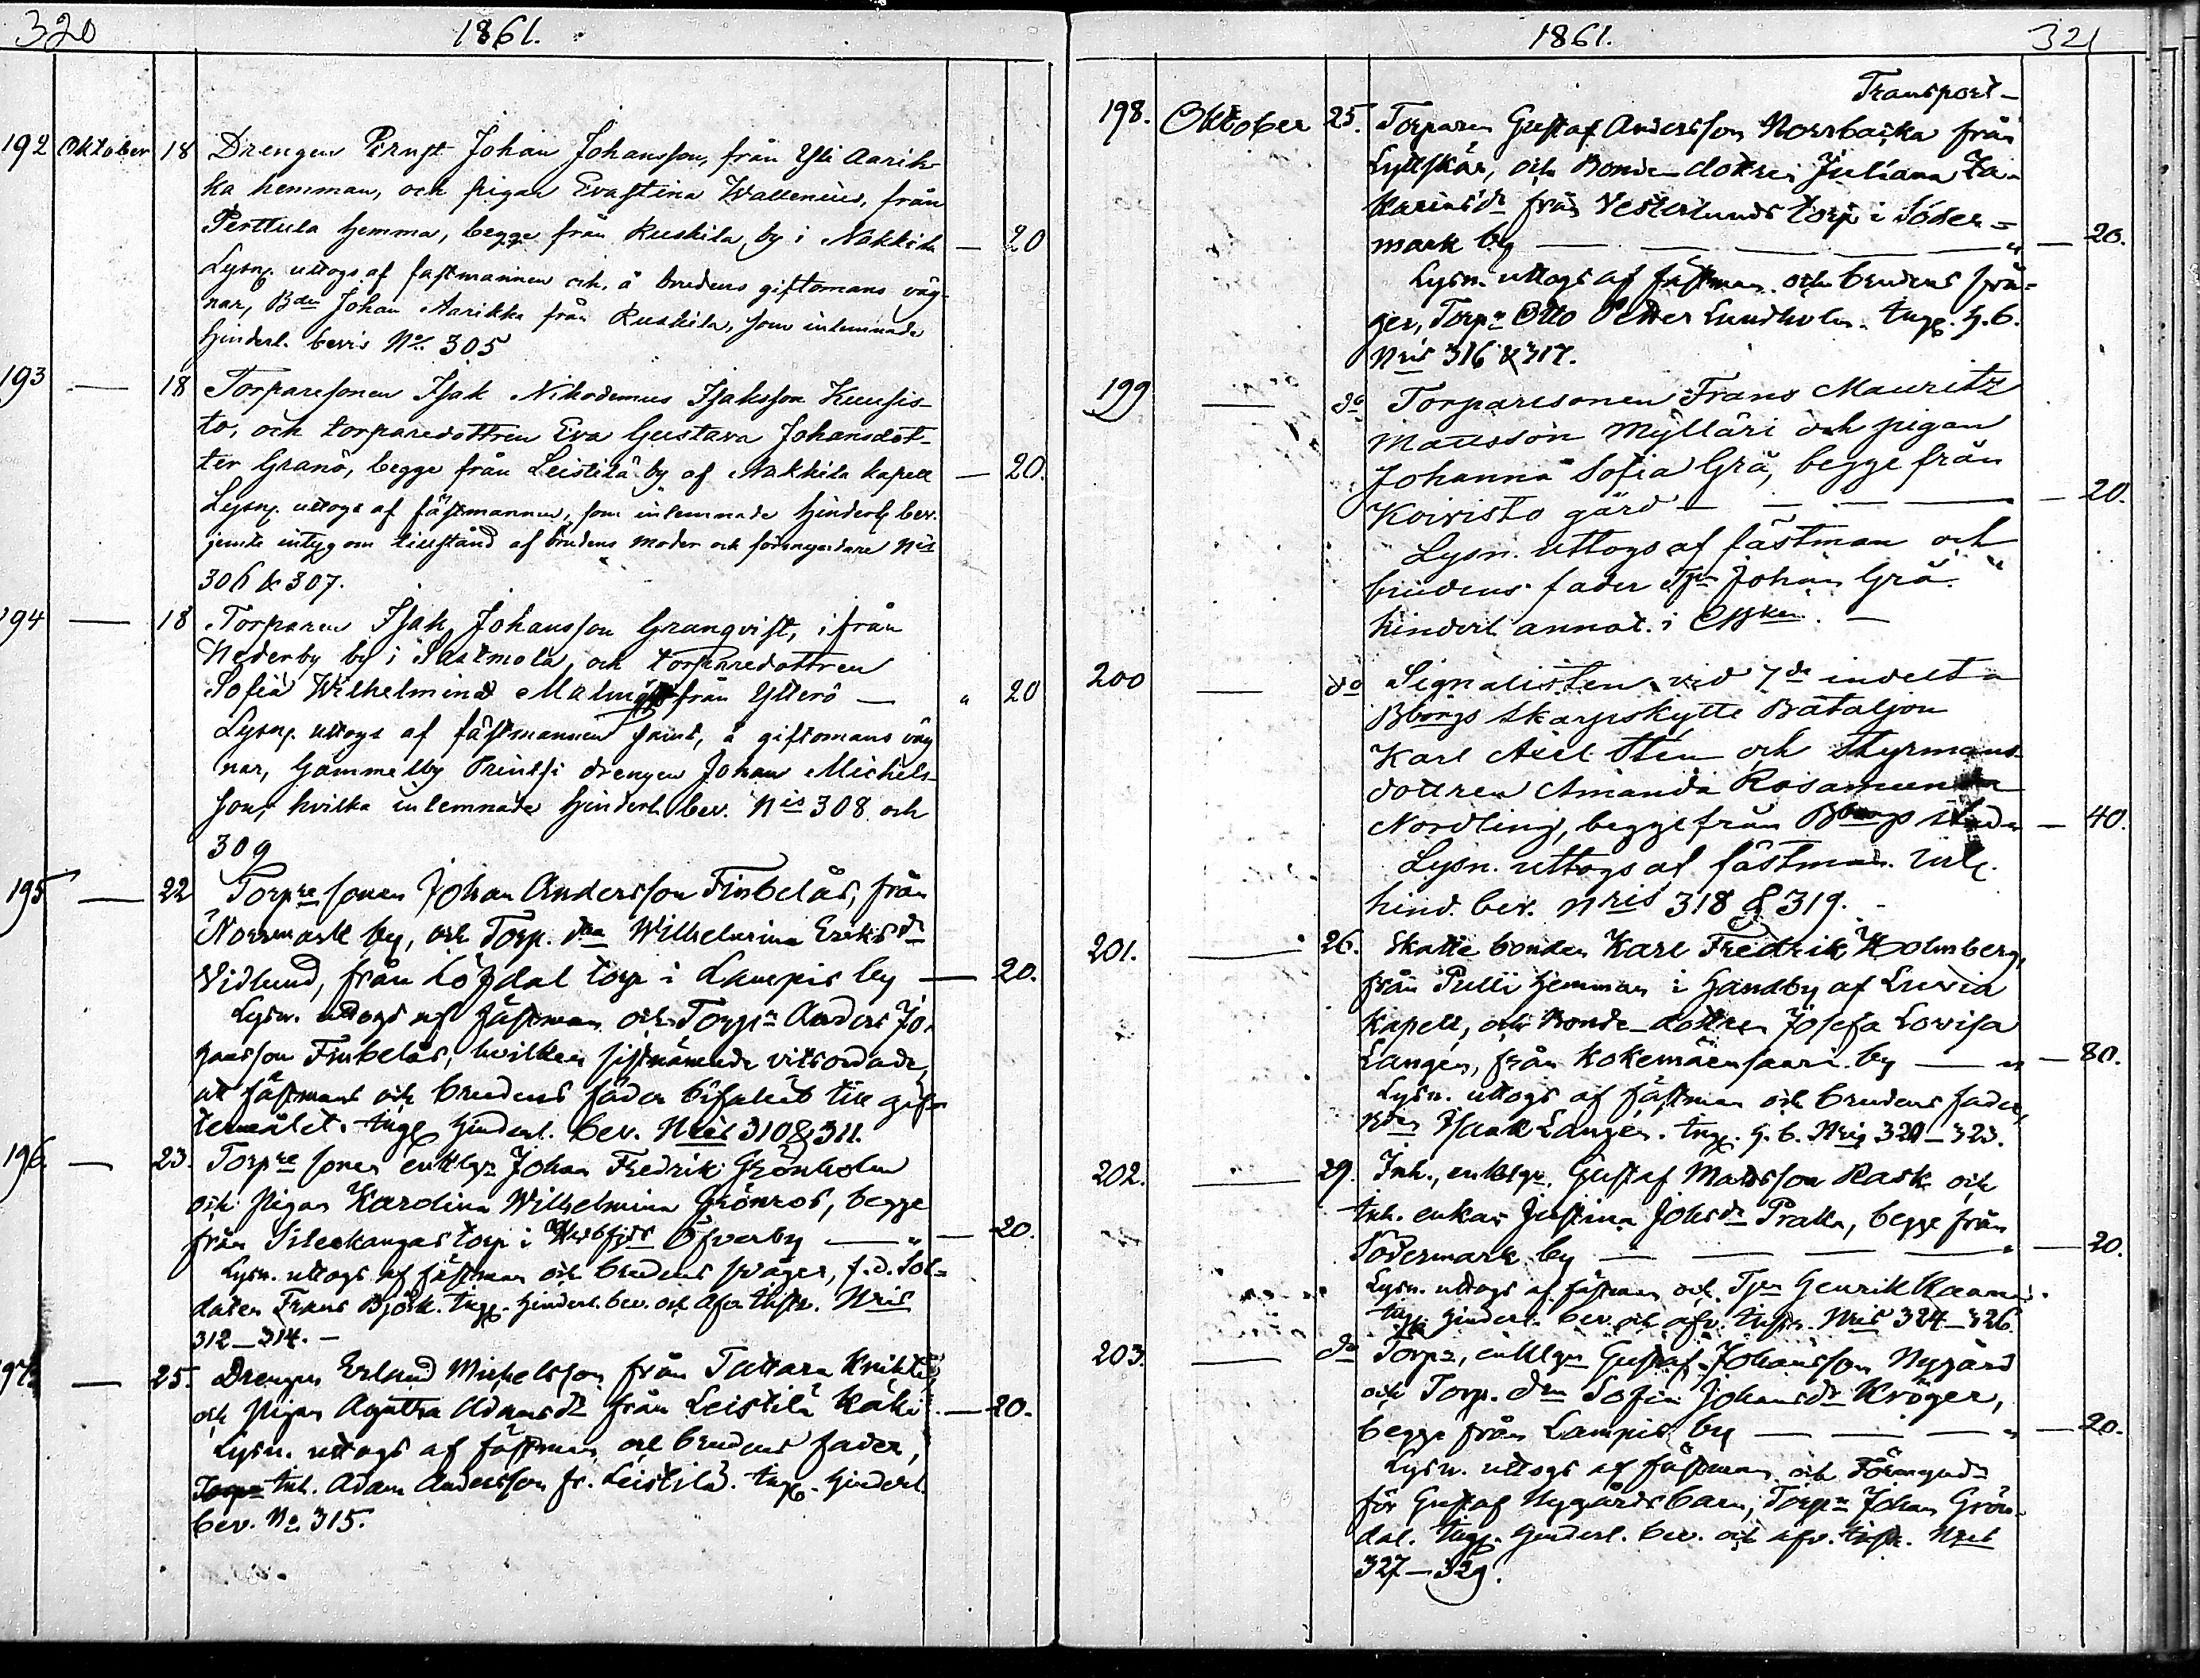 320
1861.
192 Oktober 18 Drengen Ernst Johan Johansson, från Yli Aarik-
ka hemman, och pigan Evastina Wallenius, från
Perttula hemma, begge från Ruskila by i Nakkila — 20
Lysng. uttogs af fastmannen och å brudens giftomans väg-
nar, Bden Johan Aarikka från Ruskila, som inlemnade
hinderl. bevis No 305
193 — 18 Torparesonen Isak Nikodemus Isaksson Kuusis-
to, och torparedottren Eva Gustava Johansdot-
ter Granö, begge från Leistilä by af Nakkila kapell — 20.
Lysng. uttogs af fästmannen, som inlemnade hinderl. bev.
jemte intyg om tillstånd af brudens moder och förmyndare Nis
306 & 307.
194 — 18 Torparen Isak Johansson Granqvist, ifrån
Nederby by i Sastmola, och torparedottren
Sofia Wilhelmina från Ytterö — " 20
Lysng. uttogs af fästmannen samt, å giftomans väg
nar, Gammelby Prinssi drengen Johan Michels-
son, hvilka inlemnade hinderl. bev. Nis 308 och
309
195 — 22 Torpre sonen Johan Andersson Finbelås, från
Norrmark by, och Torp. dra Wilhelmina Eriksdr
Vidlund, från Löfdal torp i Lampis by — 20.
Lysn. uttogs af fästman och Torpn Anders Jo-
hansson Finbelås, hvilken sistnämnde vitsordade,
att fästmans och brudens fäder bifallit till gif-
temålet. Ingf. hinderl. bev. Nris 310 & 311.
196. — 23. Torpre sonen enklgn Johan Fredrik Grönholm
och Pigan Karolina Wilhelmina Grönros, begge
från torp i Öfverby — " — 20.
Lysn. uttogs af fästman och brudens svåger, f.d. Sol-
daten Frans Björk. Ingf. hinderl. bev. och afv. instr. Nris
312—314. —
197. — 25. Drengen Erland Michelsson från Tattara
och Pigan Agatha Adamsdr från Leistilä — 20.
Lysn. uttogs af fästman och brudens fader,
Inh. Adam Andersson fr. Leistilä. Ingf. hinderl.
bev. No 315.
1861.
321
Transport —
198. Oktober 25. Torparen Gustaf Andersson Norrbacka från
Lyttskär, och Bonde-dottren Juliana Za-
kariasdr från Vesterlunds torp i Söder-
mark by — — — " — 20.
Lysn. uttogs af fästman och brudens svå-
ger, Torpn Otto Petter Lundholm. Ingf. h. b.
Nris 316 & 317.
199 — do Torparesonen Frans Mauritz
Mattsson Mylläri och pigan
Johanna Sofia Grå, begge från
Koivisto gård — — — 20.
Lysn. uttogs af fästman och
brudens fader Tpn Johan Grå.
hinderl annot. i
200 — do Signalisten vid 7de indelta
Bborgs Skarpskytte Bataljon
Karl Axel Sten och Styrmans
dottren Amanda Rosamunda
Nordling, begge från Bborgs stad — 40.
Lysn. uttogs af fästman. Inl.
hind. bev. Nris 318 & 319.
201. — 26. Skatte bonden Karl Fredrik Holmberg,
från Pulli hemman i Handby af Luvia
Kapell, och Bonde-dottren Josefa Lovisa
Langén, från Kokemäensaari by — " — 80.
Lysn. uttogs af fästman och brudens fader,
Bden Isaak Langén. Ingf. h. b. Nris 320—323.
202. — 29. Inh., enklgn. Gustaf Matsson Rask och
Inh. enkan Justina Johsdr Pralla, begge från
Södermark by — — — " — 20.
Lysn. uttogs af fästman och Tpn Henrik
Ingf. hinderl. bev. och afv. instr. Nris 324—326.
203. — do Torpn, enklgn Gustaf Johansson Nygård
och Torp. drn Sofia Johansdr Kröger,
begge från Lampis by — — — " — 20.
Lysn. uttogs af fästman och Förmynd-n
för Gustaf Nygårds barn, Torpn Johan Grön-
dal. Ingf. hinderl. bev. och afv. instr. Nris
327—329.